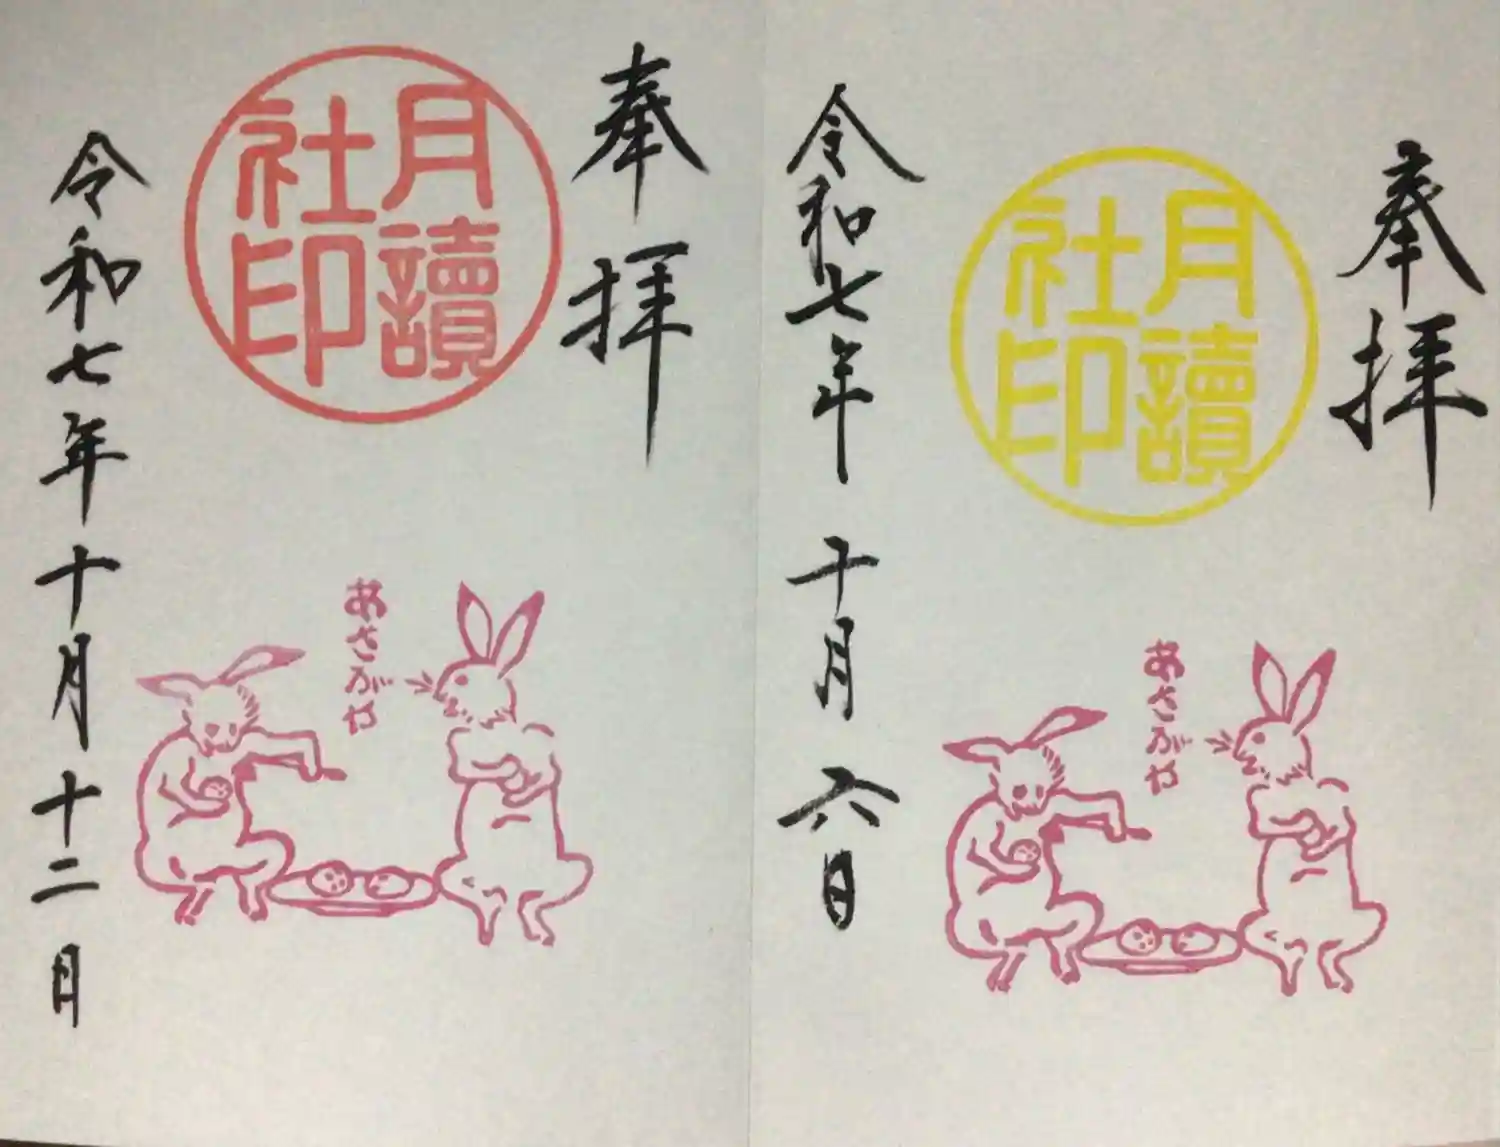 奉拝
月讀
社印
あさがや
令和七年十月十二日
奉拝
月讀
社印
あさがや
令和七年十月六日